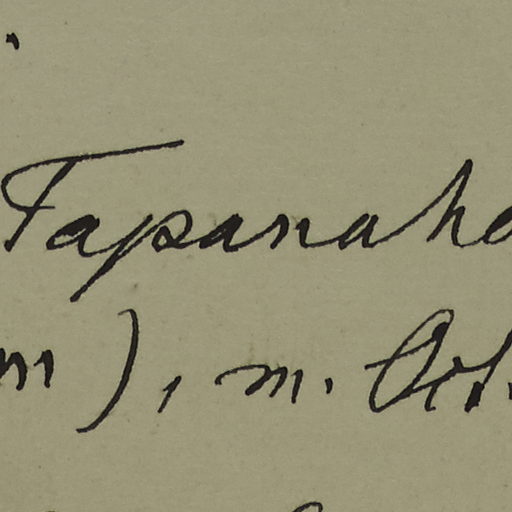 Tapanaho
m), m. Oct.